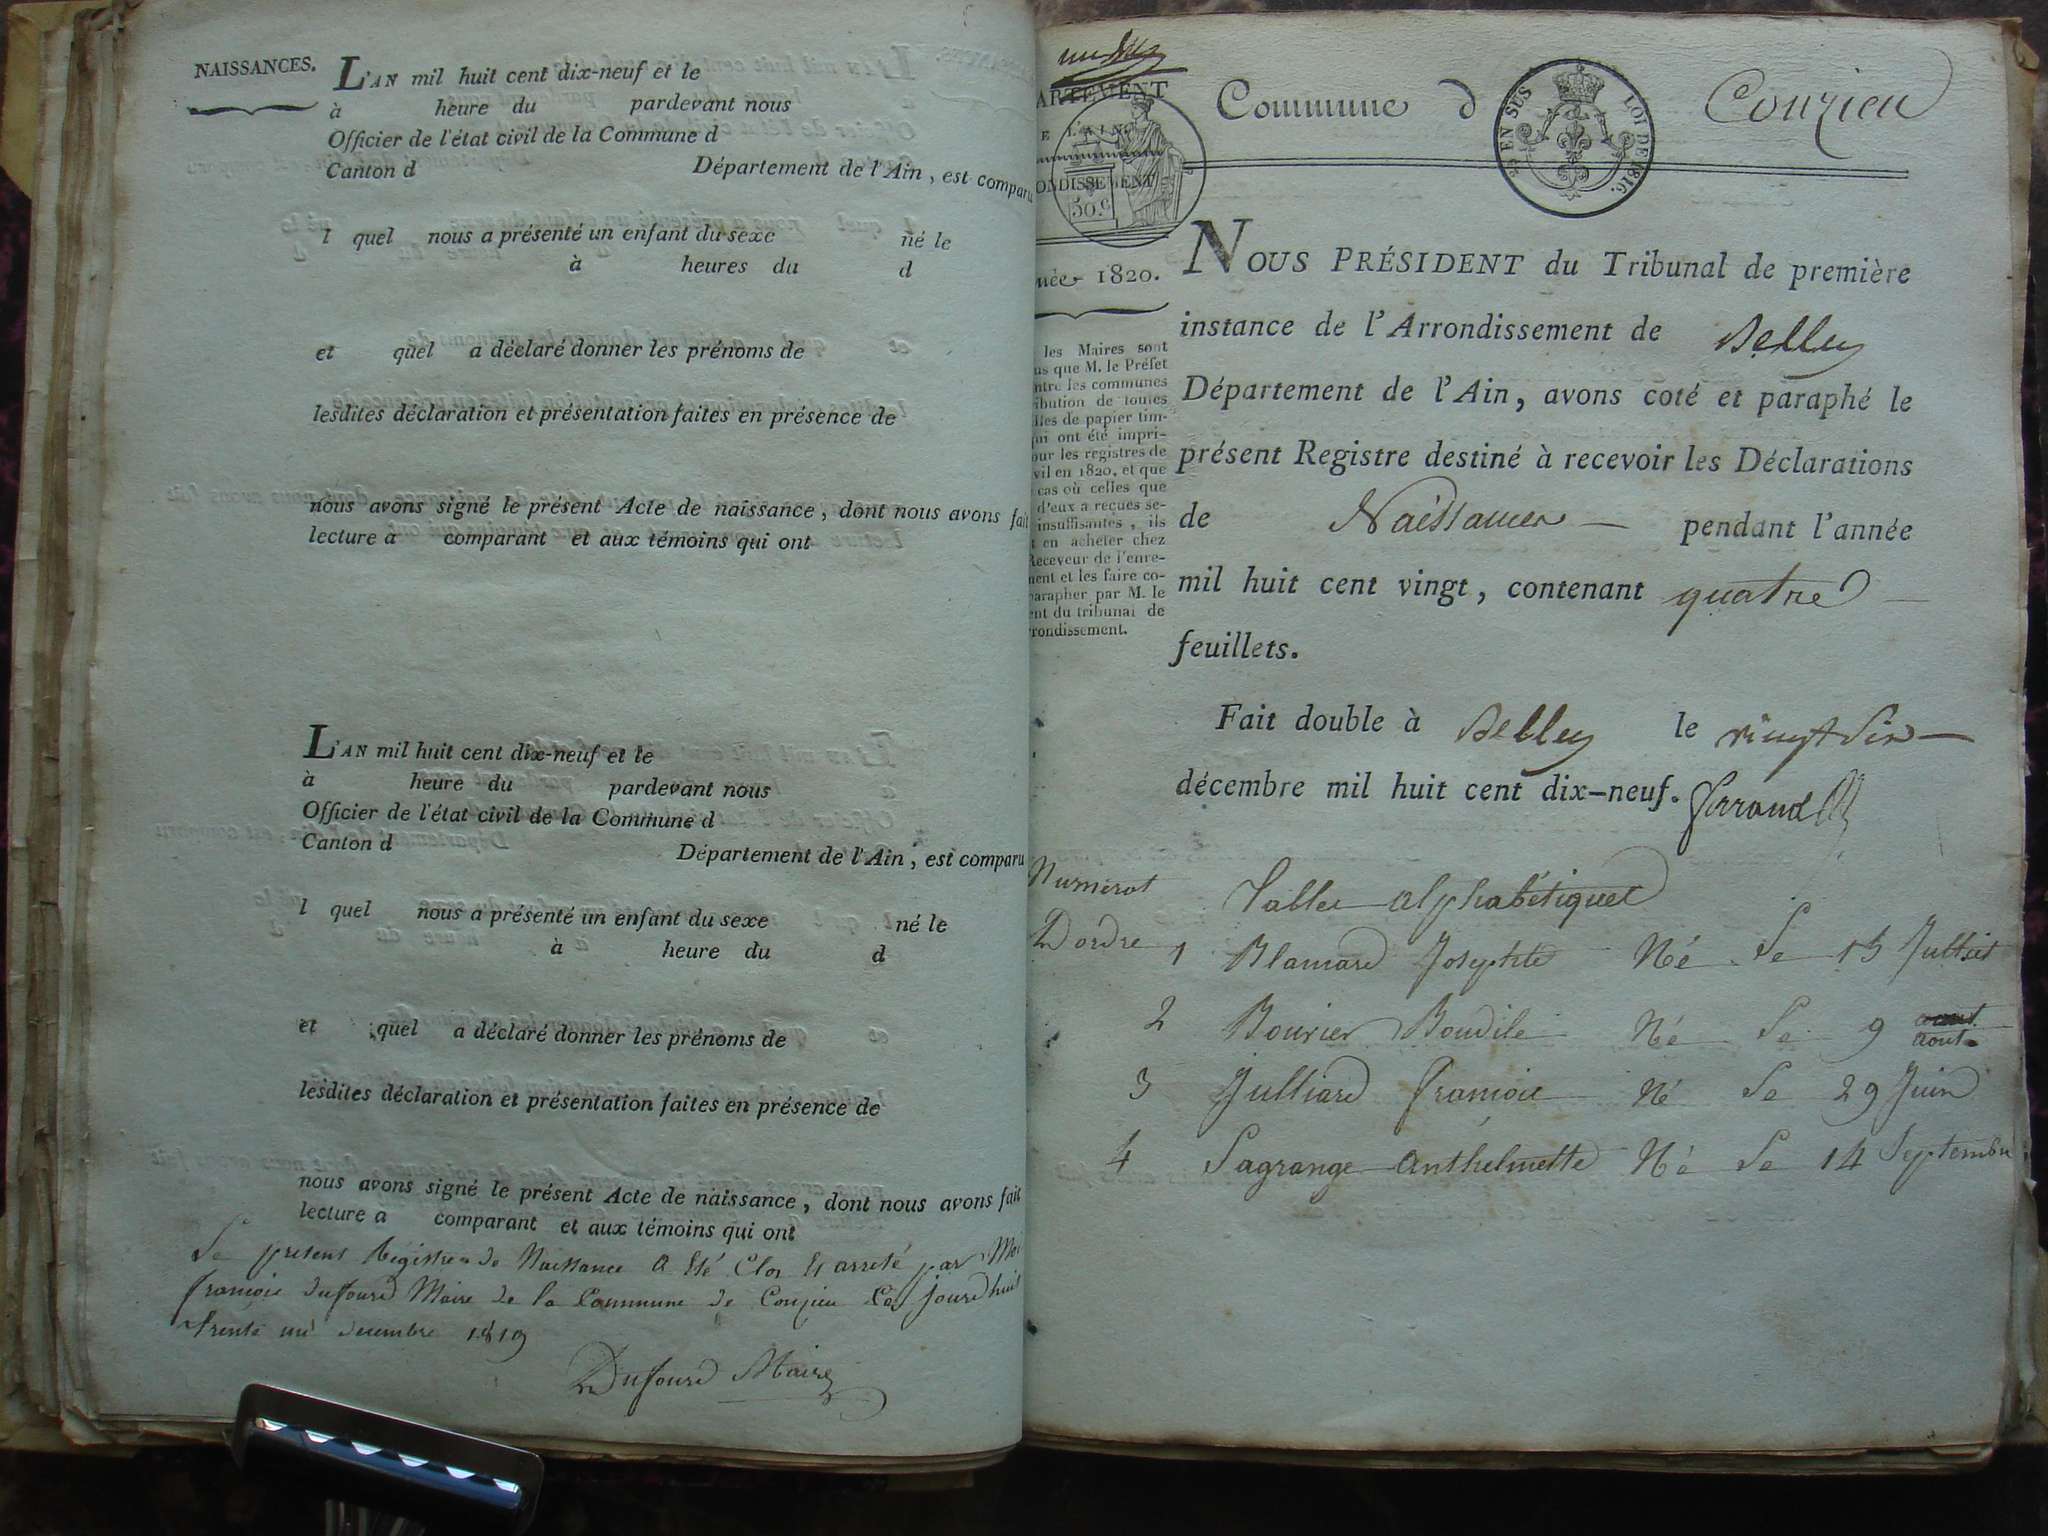 NAISSANCES.
L'AN mil huit cent dix-neuf et le
à heure du pardevant nous
Officier de l'état civil de la Commune d
Canton d Département de l'Ain, est comparu
l quel nous a présenté un enfant du sexe né le
à heures du d
et quel a déclaré donner les prénoms de
lesdites déclaration et présentation faites en présence de
nous avons signé le présent Acte de naissance, dont nous avons fait
lecture a comparant et aux témoins qui ont
L'AN mil huit cent dix-neuf et le
à heure du pardevant nous
Officier de l'état civil de la Commune d
Canton d Département de l'Ain, est comparu
l quel nous a présenté un enfant du sexe né le
à heure du d
et quel a déclaré donner les prénoms de
lesdites déclaration et présentation faites en présence de
nous avons signé le présent Acte de naissance, dont nous avons fait
lecture a comparant et aux témoins qui ont
Le present Régistre de Naissance a Eté Clos Et arreté par Moi
françois dufourd Maire de la Commune de Conzieu Ce jourd huit
trente un decembre 1819
Dufourd Maire
ARTEMENT
E L'AIN
ONDISSEMENT
50.c
Commune d Conzieu
EN SUS LOI DE 1816.
née 1820.
les Maires sont
us que M. le Préfet
ntre les communes
ibution de toutes
lles de papier tim-
qui ont été impri-
our les registres de
vil en 1820, et que
cas où celles que
d'eux a reçues se-
insuffisantes, ils
t en acheter chez
Receveur de l'enre-
ment et les faire co-
parapher par M. le
ent du tribunal de
rrondissement.
NOUS PRÉSIDENT du Tribunal de première
instance de l'Arrondissement de Belley
Département de l'Ain, avons coté et paraphé le
présent Registre destiné à recevoir les Déclarations
de Naissances pendant l'année
mil huit cent vingt, contenant quatre
feuillets.
Fait double à Belley le vingt Six
décembre mil huit cent dix-neuf.
Numerot
Dordre
Tables alphabétiques
1 Blanard Josephte Né Le 15 Julliet
2 Bouvier Boudile Né Le 9 aout
3 Julliard françoise Né Le 29 Juin
4 Lagrange anthelmette Né Le 14 Septembre